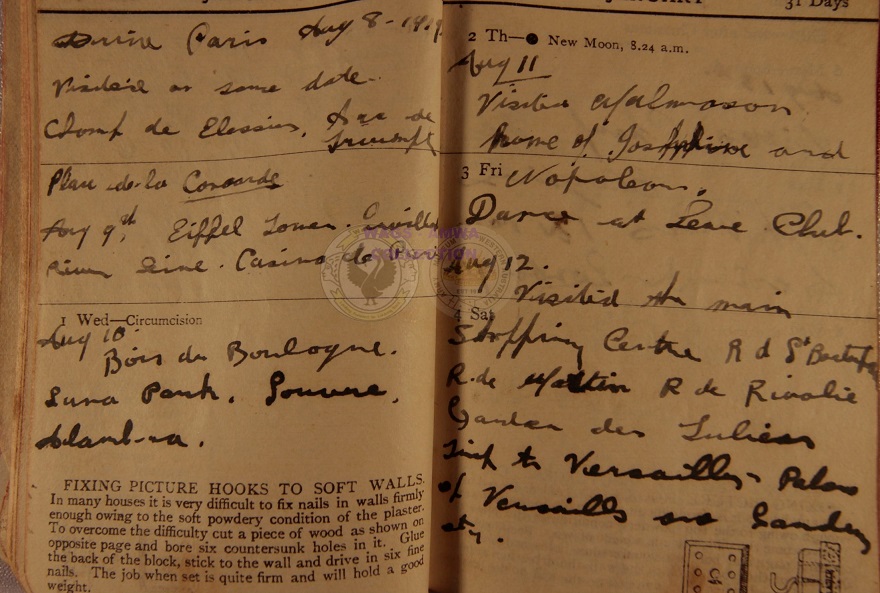 31 Days
Paris Aug 8 - 1919
Visited on same date.
Champ de Elessius, Arc de
Triumpf
Place de la Concorde
Aug 9th, Eiffel Tower.
River Seine. Casino de
1 Wed—Circumcision
Aug 10
Bois du Boulogne.
Luna Park. Louvre.
FIXING PICTURE HOOKS TO SOFT WALLS.
In many houses it is very difficult to fix nails in walls firmly
enough owing to the soft powdery condition of the plaster.
To overcome the difficulty cut a piece of wood as shown on
opposite page and bore six countersunk holes in it. Glue
the back of the block, stick to the wall and drive in six fine
nails. The job when set is quite firm and will hold a good
weight.
2 Th—● New Moon, 8.24 a.m.
Aug 11
Visited Malmason
home of Josephine and
3 Fri Napoleon.
Dance at Leave Club.
Aug 12.
Visited the main
4 Sat
Shopping Centre R d St
R. de R de Rivolie
Garden des Tulieas
Trip to Versailles - Palace
of Versailles and Gardens
etc.